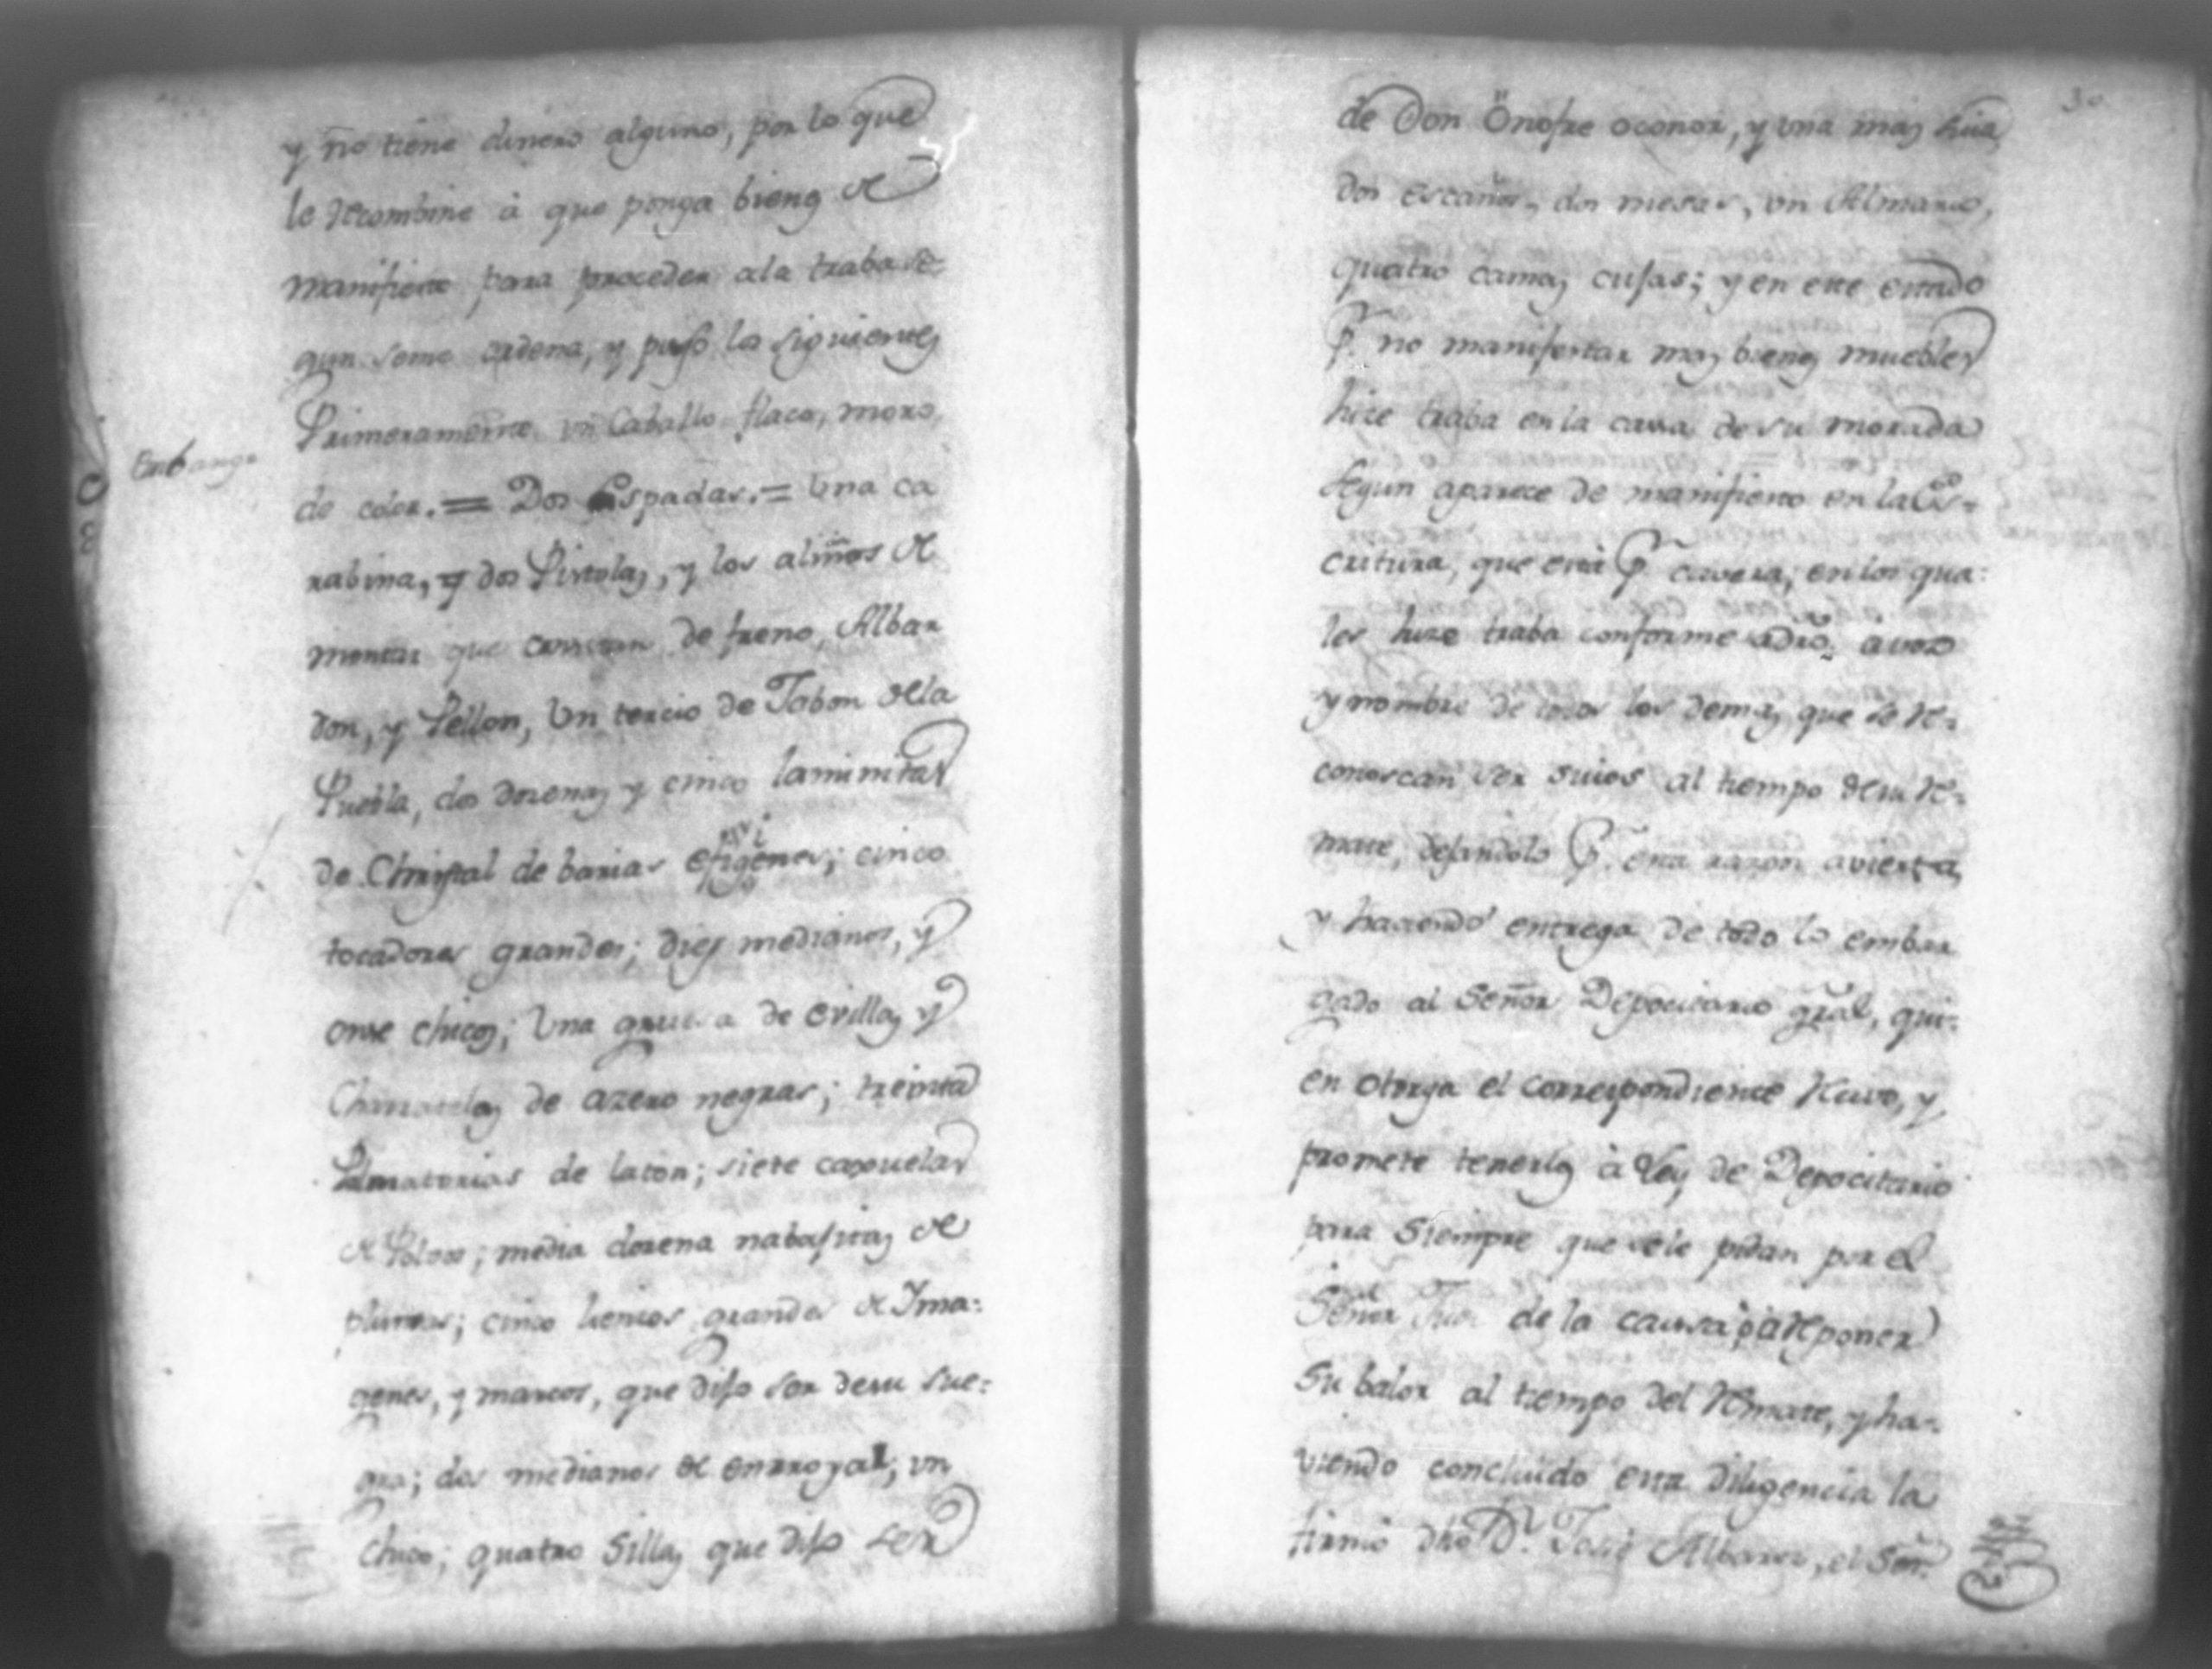 y no tiene dinero alguno, por lo que
le recombine à que ponga bienes de
manifiesto para proceder ala traba se-
gun seme ordena, y puso los siguientes
Embargo
Primeramente un Caballo flaco, moro
de color. = Dos Espadas. = Una ca
rabina, y dos Pistolas, y los aliños de
montar que constan de freno, Albar
don, y Pellon, Un tercio de Jabon dela
Puebla, dos dozenas y cinco laminitas
de Christal de barias efigenes; cinco
tocadores grandes; dies medianos, y
onse chicos; Una gruesa de evillas y
Charratelas de azero negras; treinta
Palmatorias de laton; siete casuelas
de Polvos; media dozena nabajitas de
plumas; cinco liensos grandes de Yma-
genes, y marcos, que dijo ser desu sue-
gra; dos medianos de enrroyal; un
chico; quatro Sillas que dijo ser
30
de Don Onofre oconor, y una mas suia
dos escaños, dos mesas, un Almario,
quatro camas cujas; y en este estado
Pr. no manifestar mas bienes muebles
hize traba en la cassa de su morada
segun aparece de manifiesto en la Es-
critura, que està Pr. cavesa; en los qua-
les hize traba conforme adro. à voz
y nombre de todos los demas que se re-
conoscan ser suios al tiempo desu re-
mate, dejandolo Pr. esta razon avierta,
y haciendo entrega de todo lo embar
gado al Señor Depocitario gral, qui-
en otorga el correspondiente Recivo, y
promete tenerlos à Ley de Depocitario
para siempre que sele pidan por el
Señor Juez de la causa, ò à reponer
su balor al tiempo del Remate, y ha-
viendo concluido esta diligencia la
firmò dho Dn. José Albares, el Sor.